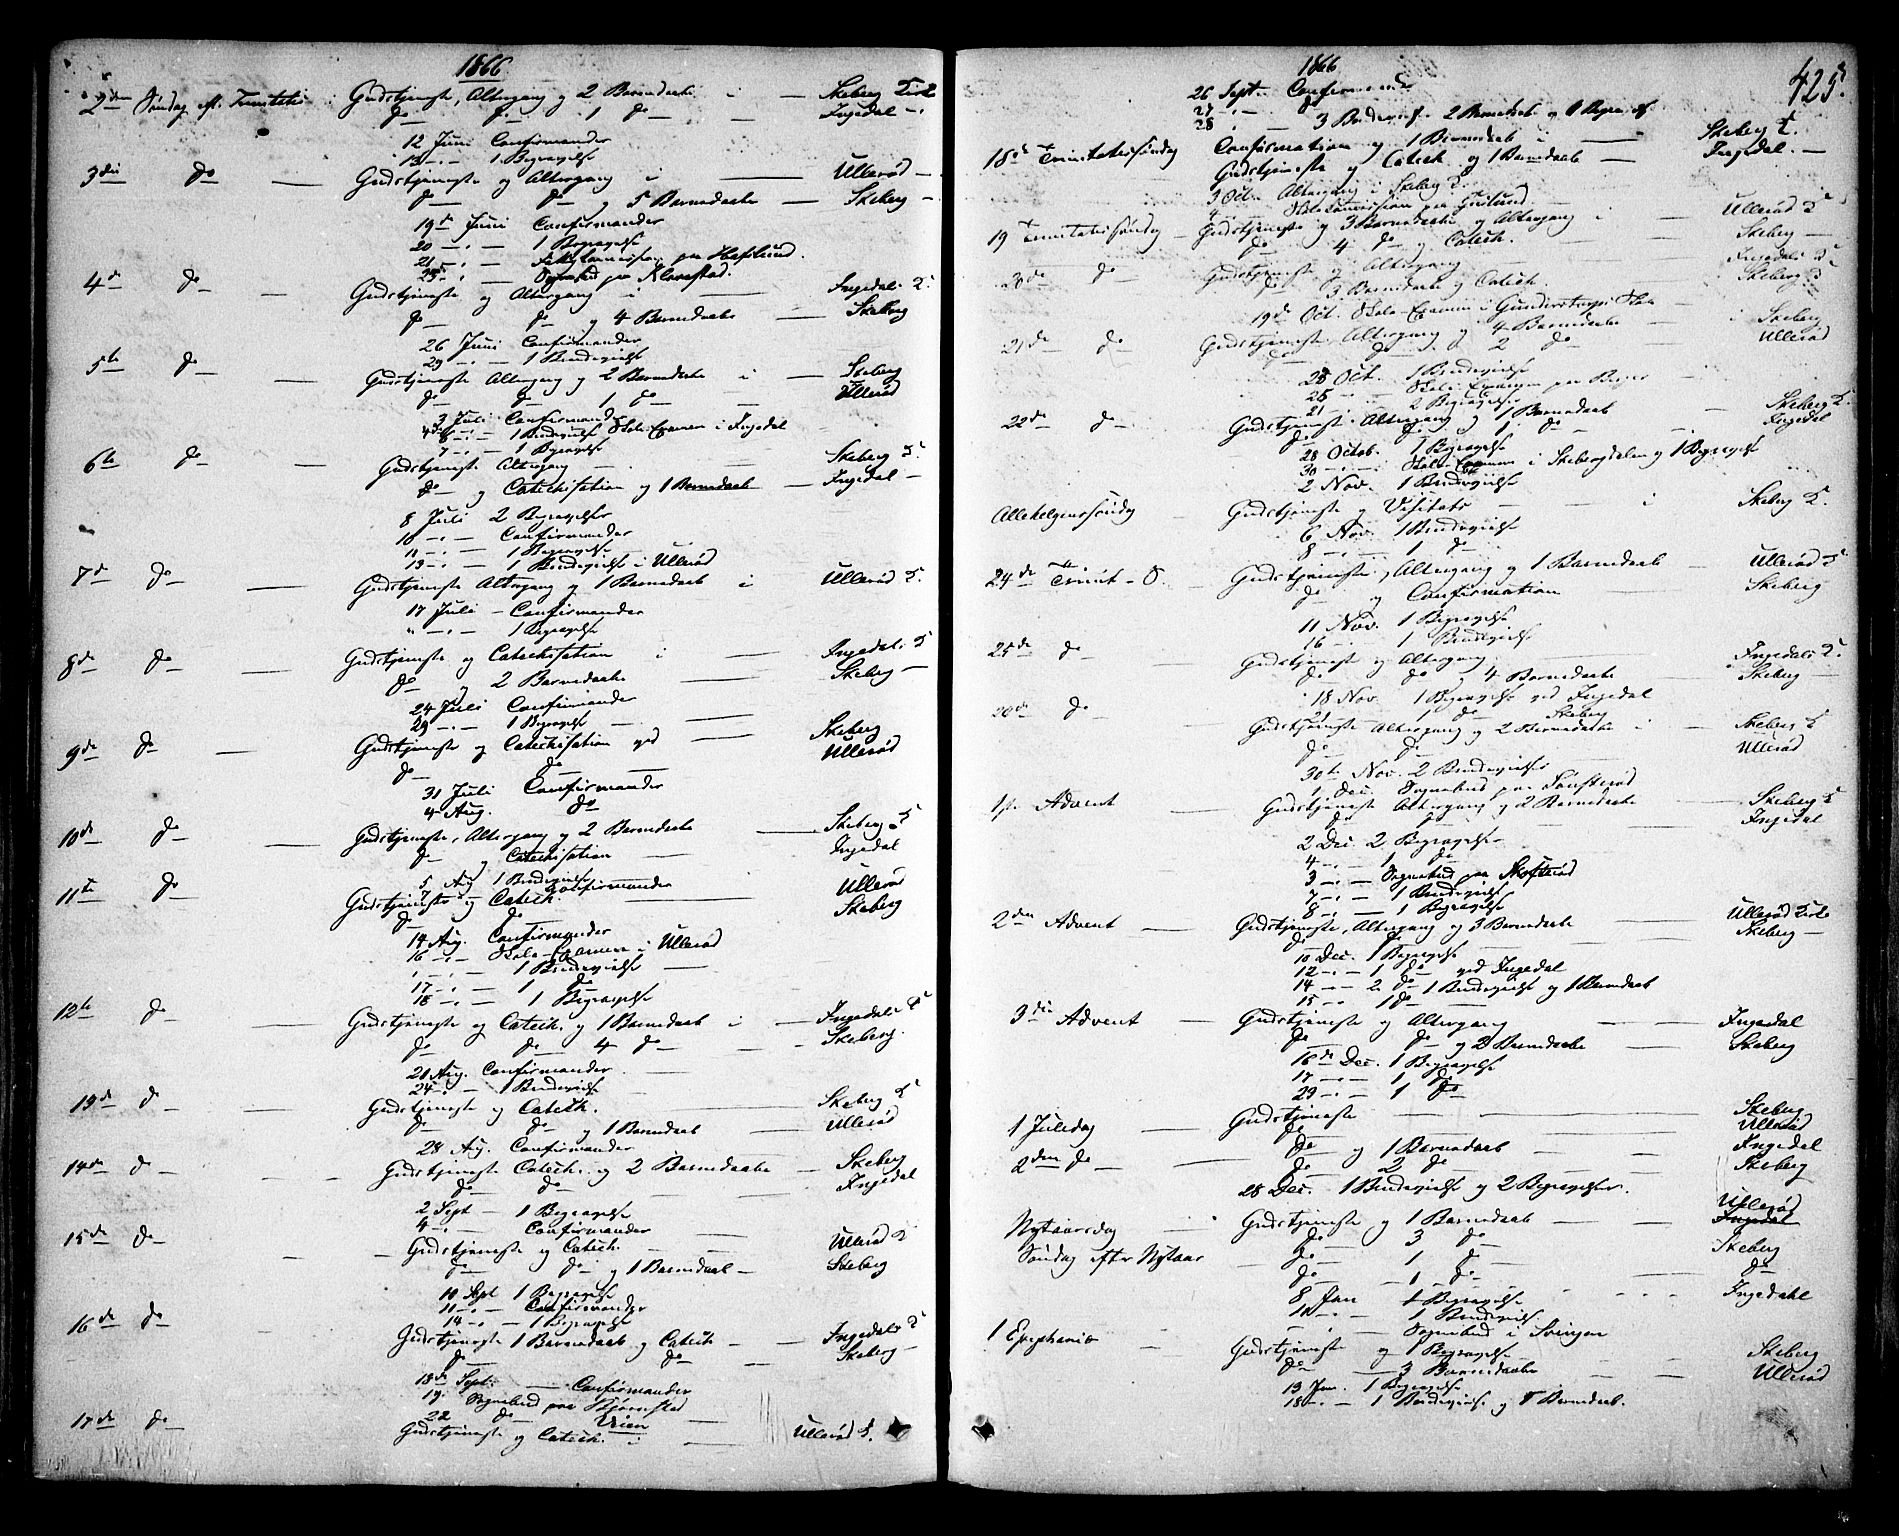 1866
2den Søndag ef. Trinitatis Gudstjeneste, Altergang og 2 Barnedaabe i Skeberg Kirke
do do 1 do Ingedal
12 Juni Confirmander
13 1 Begravelse
3die do Gudstjeneste og Altergang i Ullerød
do do og 5 Barnedaabe Skeberg
19de Juni Confirmander
20 1 Begravelse
21 paa Hafslund.
25 Sognebud paa Navestad.
4de do Gudstjeneste og Altergang i Ingedals K.
do do og 4 Barnedaabe Skeberg
26 Juni Confirmander
29 1 Brudevielse
5te do Gudstjeneste Altergang og 2 Barnedaabe i Skeberg
do do 1 do Ullerød
3 Juli Confirmander
1 Brudevielse Skole-Examen i Ingedal
7 1 Begravelse
6te do Gudstjeneste Altergang Skeberg K.
do og Catechisation og 1 Barnedaab Ingedal
8 Juli 2 Begravelser
10 Confirmander
11 1 Begravelse
13 1 Brudevielse i Ullerød
7de do Gudstjeneste Altergang og 1 Barnedaab i Ullerød K.
17 Juli Confirmander
" 1 Begravelse
8de do Gudstjeneste og Catechisation i Ingedals K
do og 2 Barnedaabe Skeberg
24 Juli Confirmander
29 1 Begravelse
9de do Gudstjeneste og Catechisation ved Skeberg
do do Ullerød
31 Juli Confirmander
4 Aug. do
10de do Gudstjeneste, Altergang og 2 Barnedaabe Skeberg K
do og Catechisation Ingedal
5 Aug 1 Brudevielse
7 Confirmander
11te do Gudstjeneste og Catech. Ullerød
do do Skeberg
14 Aug. Confirmander
16 Skole-Examen i Ullerød
1 Brudevielse
17 1 do
18 1 Begravelse
12te do Gudstjeneste og Catech. og 1 Barnedaab i Ingedals K
do do 4 do Skeberg.
21 Aug. Confirmander
24 1 Brudevielse
13de do Gudstjeneste og Catech. Skeberg K
do do og 1 Barnedaab Ullerød
28 Aug. Confirmander
14de do Gudstjeneste Catech. og 2 Barnedaabe Skeberg
do do Ingedal
2 Sept 1 Begravelse
4 Confirmander
15de do Gudstjeneste og Catech. Ullerød K
do do og 1 Barnedaab Skeberg
10 Sept 1 Begravelse
11 Confirmander
14 1 Begravelse
16de do Gudstjeneste 1 Barnedaab og Catech Ingedals K
do do Skeberg
18de Sept. Confirmander
19. Sognebud paa Bjørnstad
22 do Veien
17de do Gudstjeneste og Catech. i Ullerød K.
1866
425.
26 Sept. Confirmander
27 do
28 3 Brudevielser 2 Barnedaabe og 1 Begravelse
18de Trinitatissøndag Confirmation og 1 Barnedaab i Skeberg K.
Gudstjeneste og Catech. og 1 Barnedaab Ingedal.
3 Oct. Altergang i Skeberg K.
4
19 Trinitatissøndag Gudstjeneste og 3 Barnedaabe og Altergang i Ullerød K
do 4 do og Catech. Skeberg
20de do Gudstjeneste og Altergang Ingedals K
do 3 Barnedaabe og Catech. Skeberg
19de Oct. Skole-Examen i
21de do Gudstjeneste Altergang og 4 Barnedaabe i Skeberg
do do 2 do Ullerød
23 Oct. 1 Brudevielse
25 Skole-Examen paa Berger
21 2 Begravelse
22de do Gudstjeneste Altergang og 1 Barnedaab Skeberg K.
do do 1 do Ingedal
28 Octob. 1 Begravelse
30 Skole-Examen i Skebergdalen og 1 Begravelse
2 Nov. 1 Brudevielse
Allehelgenssøndag Gudstjeneste og Visitats i Skeberg K.
6 Nov. 1 Brudevielse
8 1 do
24de Trinit-S. Gudstjeneste, Altergang og 1 Barnedaab Ullerød K
do og Confirmation Skeberg
11 Nov. 1 Begravelse
16 1 Brudevielse
25de do Gudstjeneste og Altergang Ingedals K.
do do og 4 Barnedaabe Skeberg
18 Nov. 1 Begravelse ved Ingedal
1 do Skeberg
26de do Gudstjeneste Altergang og 2 Barnedaabe i Skeberg K
do do Ullerød
30te Nov. 2 Brudevielser
1 Dec. Sognebud paa
1ste Advent Gudstjeneste Altergang og 2 Barnedaabe Skeberg K
do do Ingedal
2 Dec. 2 Begravelser
4 1 do
3 Sognebud paa
7 1 Brudevielse
8 1 Begravelse
2den Advent Gudstjeneste, Altergang og 3 Barnedaabe Ullerød Kirke
do do Skeberg
10 Dec. 1 Begravelse
12 1 do ved Ingedal
14 2 do 1 Brudevielse og 1 Barnedaab
15 1 do
3die Advent Gudstjeneste og Altergang Ingedal
do do og 2 Barnedaabe Skeberg
16de Dec. 1 Begravelse
17 1 do
29 1 do
1 Juledag Gudstjeneste Skeberg
do Ullerød
2den do do og 1 Barnedaab Ingedal
do 2 do Skeberg
28 Dec. 1 Brudevielse og 2 Begravelser.
Nytaarsdag Gudstjeneste og 1 Barnedaab Ullerød
Ingedal
do 3 do Skeberg
Søndag efter Nytaar do 1 do do
do 1 do Ingedahl
8 Jan 1 Begravelse
10 1 Brudevielse
Sognebud i Svingen
1 Epiphania Gudstjeneste og 1 Begravelse Skeberg
do 3 Barnedaabe Ullerød
13 Jan. 1 Begravelse
18 1 Brudevielse og 1 Barnedaab.